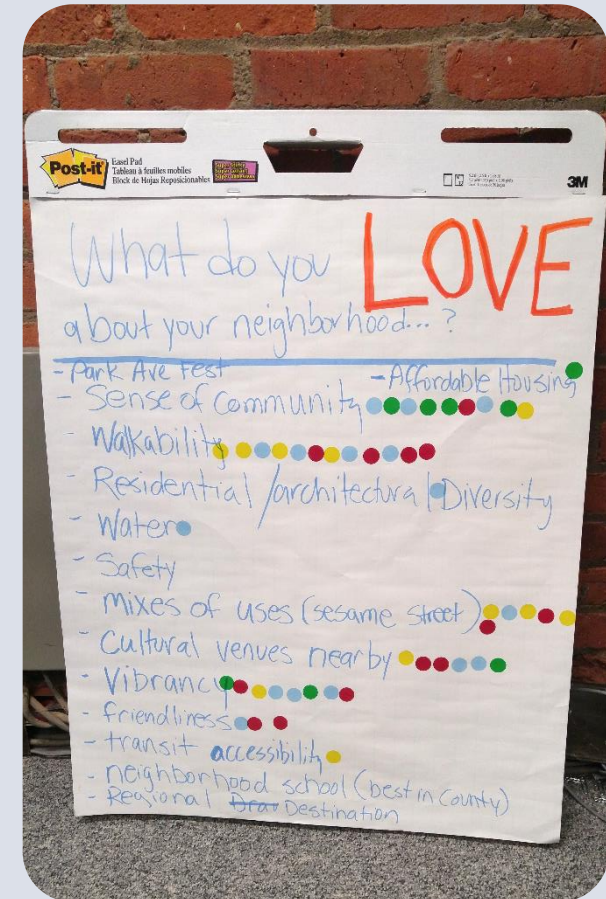 Post-it
Easel Pad
Tableau à feuilles mobiles
Block de Hojas Reposicionables
3M
What do you LOVE
about your neighborhood...?
- Park Ave Fest - Affordable Housing
- Sense of Community
- Walkability
- Residential /architectural Diversity
- Water
- Safety
- Mixes of uses (sesame street)
- Cultural venues nearby
- Vibrancy
- friendliness
- transit accessibility
- neighborhood school (best in County)
- Regional Destination